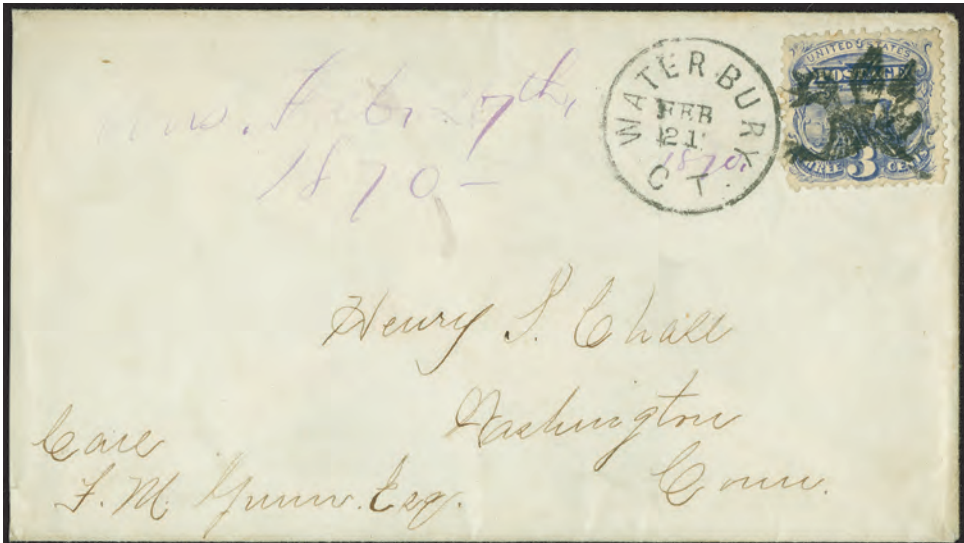 7th,
1870 –
WATERBURY
FEB
21
1870.
CT.
UNITED STATES
POSTAGE
3 CENTS
Henry S. Chase
Washington
Conn.
Care
F. M. Gunn. Esq.